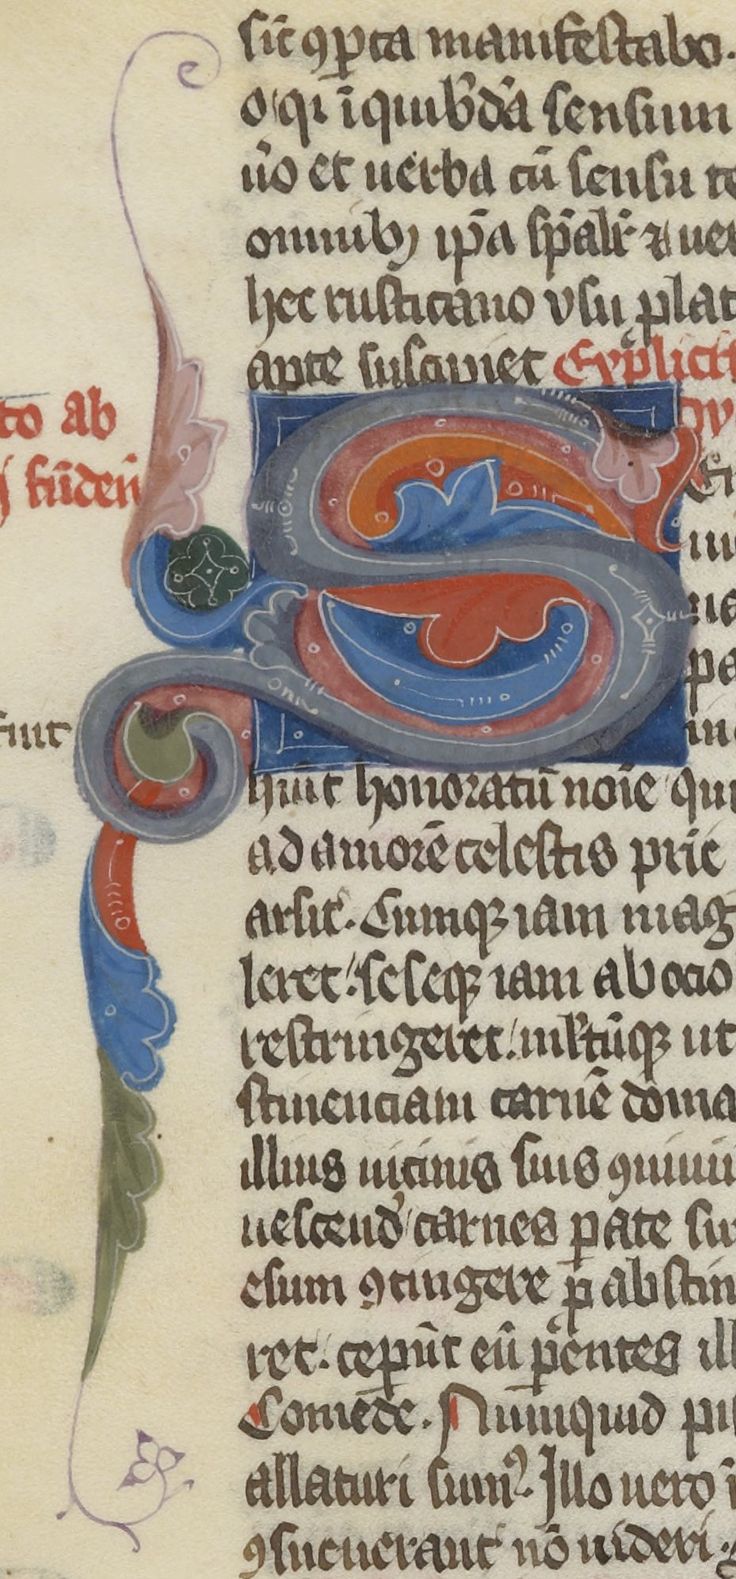 sic͛ ꝯꝑta manifestabo.
oꝛ qꝛ ī quibꝰdā sensum
u̾o et uerba cū sensu te
omnibꝫ ip̄a sp̄alit̾ ⁊ uer
hec rusticano vsu plac
apte susciꝑet Explicit
to ab
Er
pa
huit honoratū noīe qui
ad amorē celestis p̄rie
arsit. Cumqꝫ iam mag
leret: seseqꝫ iam ab ocio
restringeret: m̄ltūqꝫ ut
stinenciam carnē doma
illius uicinis suis ꝯuiui
uescend̾ carnes ꝑate su
esum ꝯtingere p̄ abstin
ret. ceperūt eū ꝑentes ill
Comede. Numquid pis
allaturi sumꝰ. Illo uero i
ꝯsueuerant nō uideri.